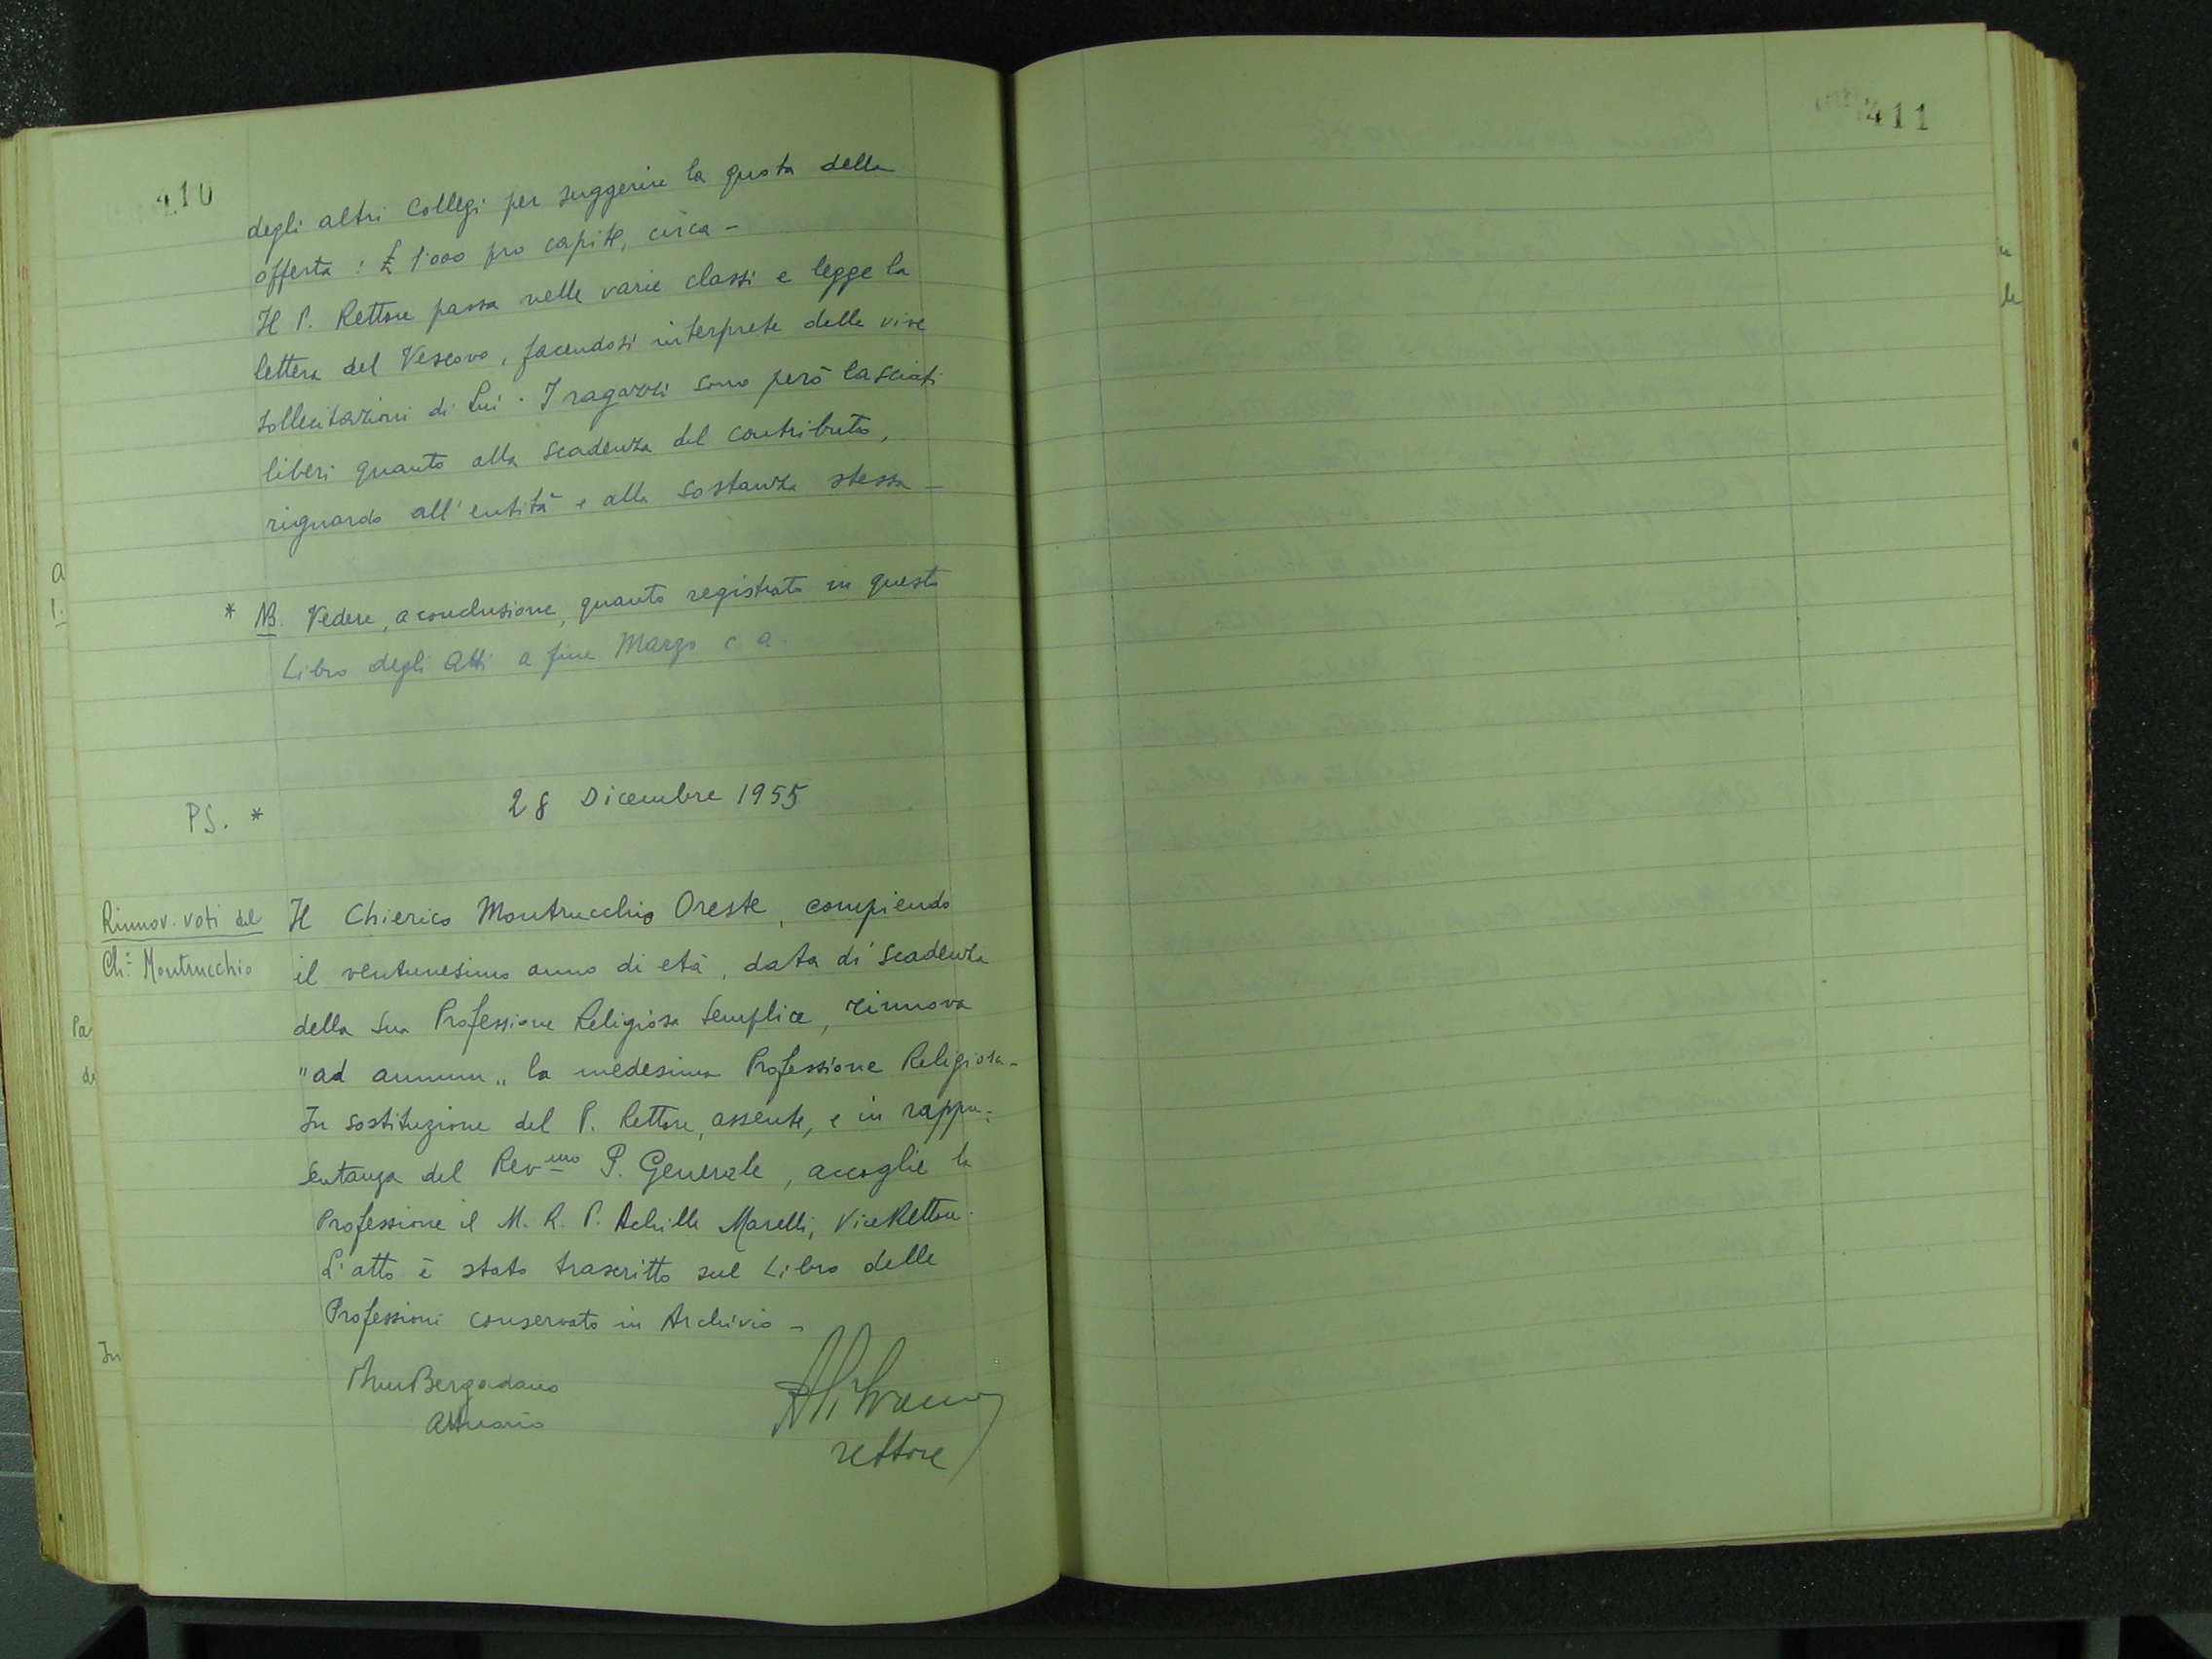 410
degli altri Collegi per suggerire la quota della
offerta : £ 1'000 pro capite, circa -
Il P. Rettore passa nelle varie classi e legge la
lettera del Vescovo, facendosi interprete delle vive
sollecitazioni di Lui. I ragazzi sono però lasciati
liberi quanto alla scadenza del contributo,
riguardo all'entità e alla sostanza stessa -
* NB. Vedere, a conclusione, quanto registrato in questo
Libro degli Atti a fine Marzo c. a.
PS. * 28 Dicembre 1955
Rinnov. voti del
Ch.º Montrucchio
Il Chierico Montrucchio Oreste, compiendo
il ventunesimo anno di età, data di scadenza
della sua Professione Religiosa Semplice, rinnova
"ad annum" la medesima Professione Religiosa -
In sostituzione del P. Rettore, assente, e in rappre=
sentanza del Revmo P. Generale, accoglie la
Professione il M. R. P. Achille Marelli, ViceRettore.
L'atto è stato trascritto sul Libro delle
Professioni conservato in Archivio -
Bergadano
Attuario
rettore
411